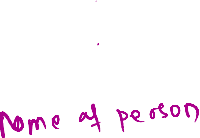 Name of person